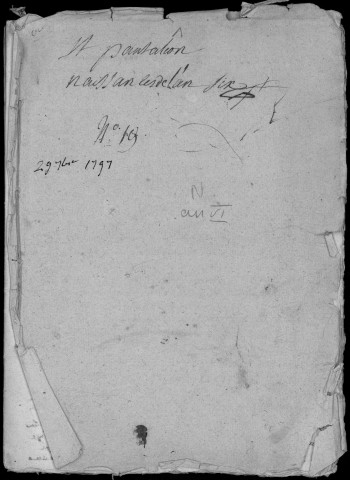 St pantaléon
naissances de l'an six
N.o
29 7bre 1797
N
an VI